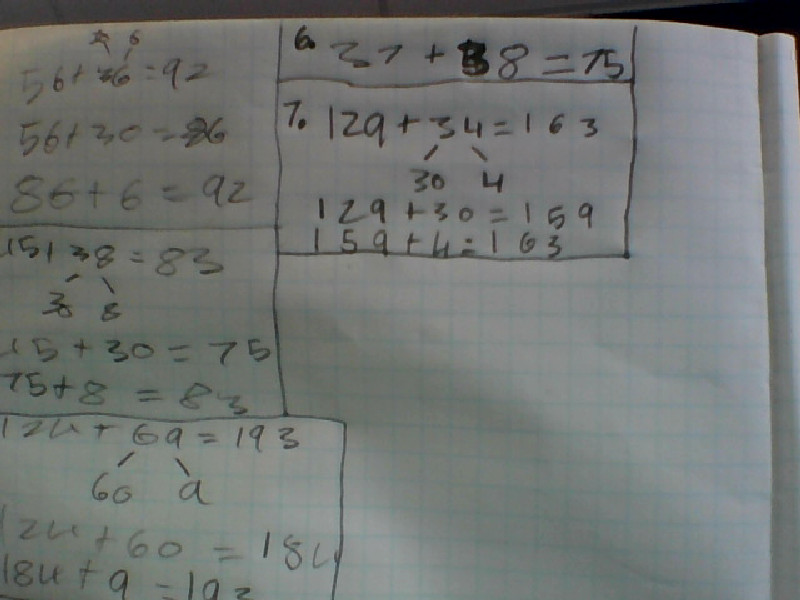 3 6
56+36=92
56+30=86
86+6=92
45+38=83
30 8
45+30=75
75+8=83
124+69=193
60 9
124+60=184
184+9=193
6. 37+38=75
7. 129+34=163
30 4
129+30=159
159+4=163